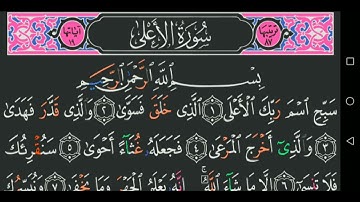 ترتيبها ٨٧ سُورَةُ الأَعْلَىٰ آياتها ١٩
بِسْمِ اللَّهِ الرَّحْمَٰنِ الرَّحِيمِ
سَبِّحِ اسْمَ رَبِّكَ الْأَعْلَى ﴿١﴾ الَّذِي خَلَقَ فَسَوَّىٰ ﴿٢﴾ وَالَّذِي قَدَّرَ فَهَدَىٰ
﴿٣﴾ وَالَّذِي أَخْرَجَ الْمَرْعَىٰ ﴿٤﴾ فَجَعَلَهُ غُثَاءً أَحْوَىٰ ﴿٥﴾ سَنُقْرِئُكَ
فَلَا تَنسَىٰ ﴿٦﴾ إِلَّا مَا شَاءَ اللَّهُ ۚ إِنَّهُ يَعْلَمُ الْجَهْرَ وَمَا يَخْفَىٰ ﴿٧﴾ وَنُيَسِّرُكَ